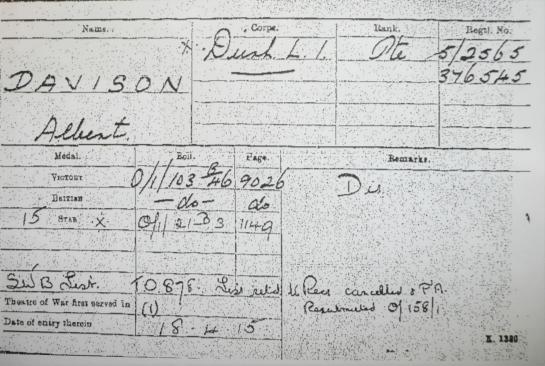 Name. Corps. Rank. Regtl. No.
X. Durh. L. I. Pte 5/2565
376545
DAVISON
Albert.
Medal. Roll. Page. Remarks.
VICTORY O/1/103 B46 9026 Dis
BRITISH -do- do
15 STAR X. O/1/21 B3 1149
SWB List. TO.878.
Recs cancelled & PA.
O/158/1
Theatre of War first served in (1)
Date of entry therein 18-4-15
K. 1380